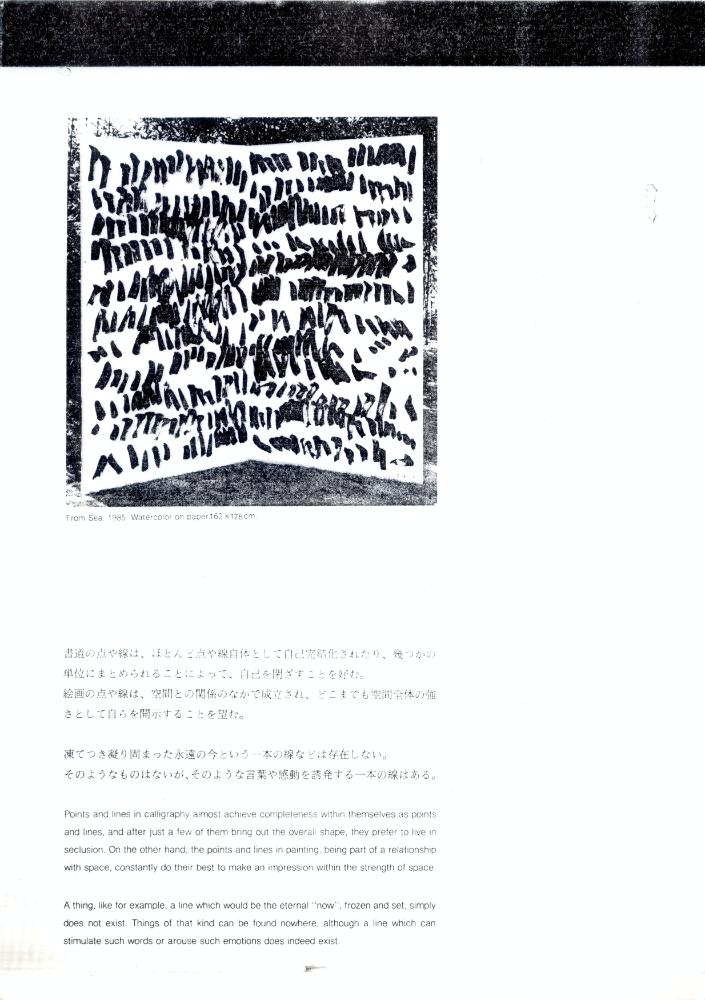 From Sea. 1985. Watercolor on paper.162×178cm.
書道の点や線は、ほとんど点や線自体として自己完結化されたり、幾つかの
単位にまとめられることによって、自己を閉ざすことを好む。
絵画の点や線は、空間との関係のなかで成立され、どこまでも空間全体の強
さとして自らを開示することを望む。
凍てつき凝り固まった永遠の今という一本の線などは存在しない。
そのようなものはないが、そのような言葉や感動を誘発する一本の線はある。
Points and lines in calligraphy almost achieve completeness within themselves as points
and lines, and after just a few of them bring out the overall shape, they prefer to live in
seclusion. On the other hand, the points and lines in painting, being part of a relationship
with space, constantly do their best to make an impression within the strength of space.
A thing, like for example, a line which would be the eternal "now", frozen and set, simply
does not exist. Things of that kind can be found nowhere, although a line which can
stimulate such words or arouse such emotions does indeed exist.